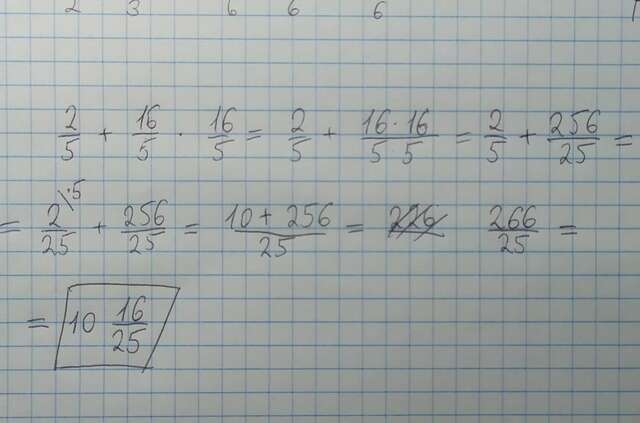 2 3 6 6 6
2/5 + 16/5 · 16/5 = 2/5 + 16·16/5·5 = 2/5 + 256/25 =
= 2\·5/25 + 256/25 = 10 + 256/25 = 266/25 =
= 10 16/25